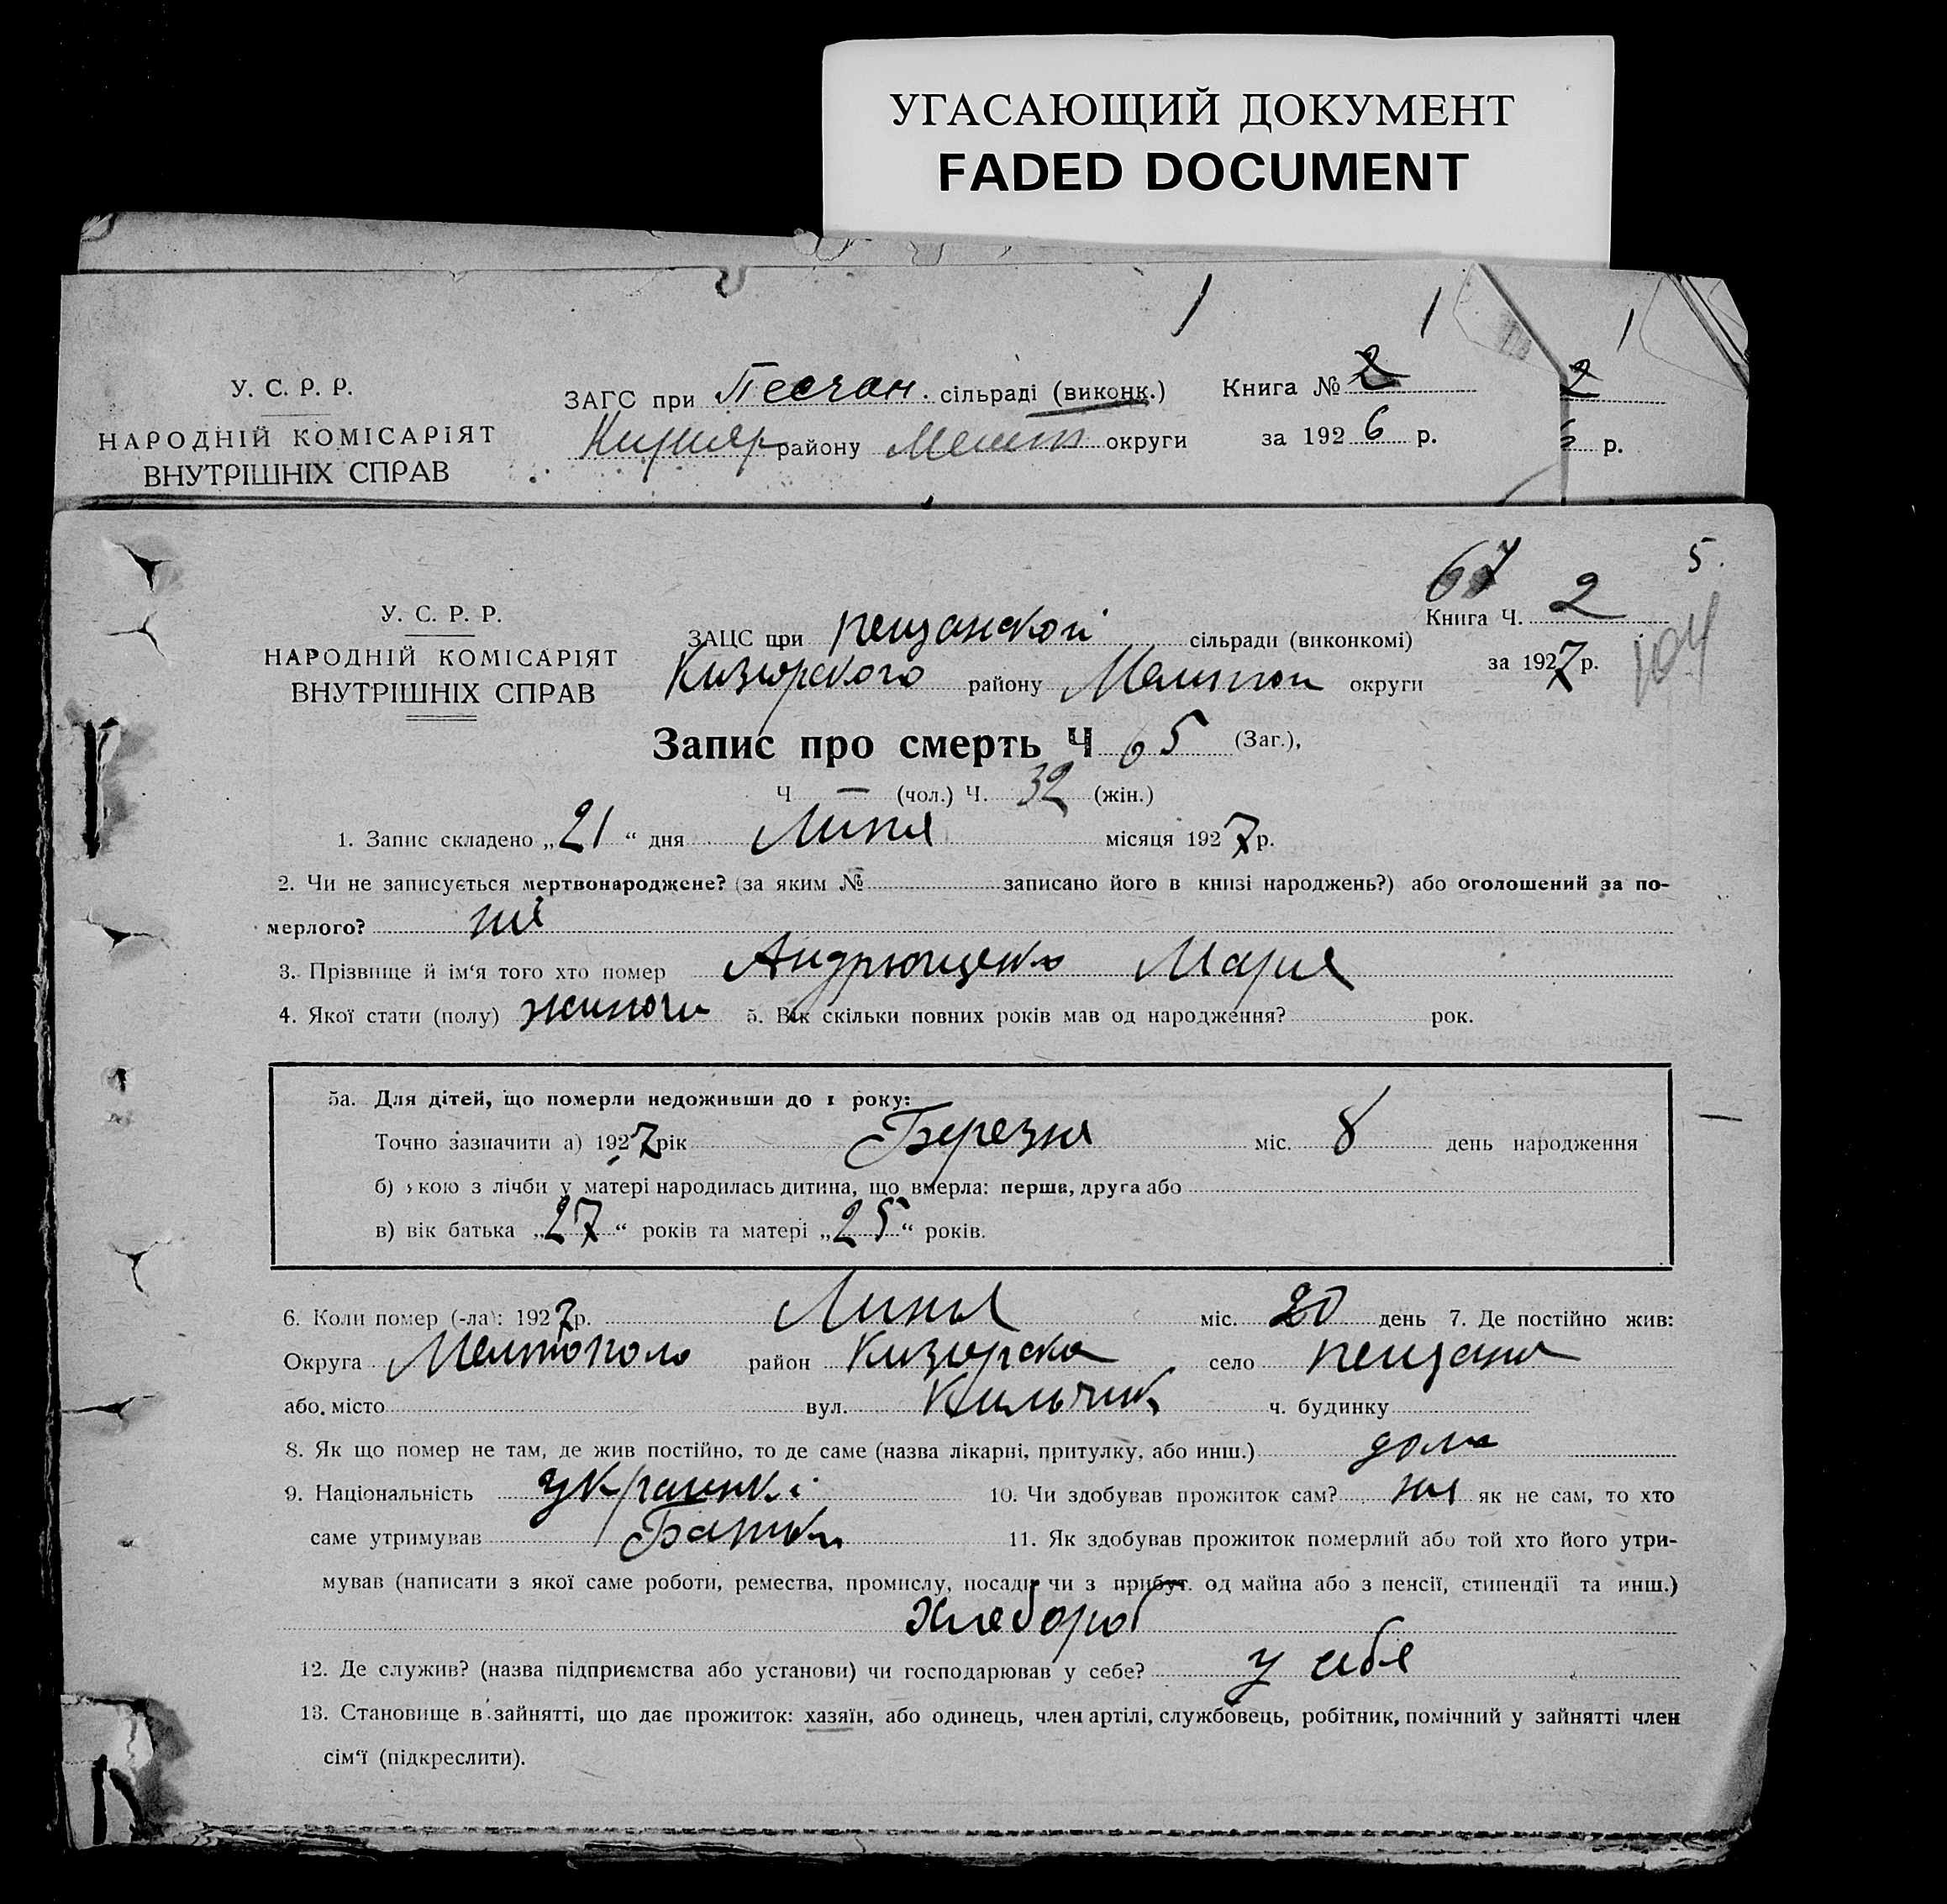 УГАСАЮЩИЙ ДОКУМЕНТ
FADED DOCUMENT
1 1 1
У. С. Р. Р.
НАРОДНІЙ КОМІСАРІЯТ
ВНУТРІШНІХ СПРАВ
ЗАГС при Песчан. сільраді (виконк.) Книга № 2 2
району Меліт округи за 1926 р. р.
67 5.
У. С. Р. Р.
НАРОДНІЙ КОМІСАРІЯТ
ВНУТРІШНІХ СПРАВ
Книга Ч. 2
ЗАЦС при пещанской сільради (виконкомі)
за 1927 р. 104
Кизіярского району Мелитоп округи
Запис про смерть Ч 65 (Заг.),
Ч — (чол.) Ч. 32 (жін.)
1. Запис складено „21“ дня Липня місяця 1927 р.
2. Чи не записується мертвонароджене? (за яким № записано його в книзі народжень?) або оголошений за по-
мерлого? ні
3. Прізвище й ім‘я того хто помер Андрющенко Мария
4. Якої стати (полу) жиночи 5. Вік скільки повних років мав од народження? рок.
5а. Для дітей, що померли недоживши до 1 року:
Точно зазначити а) 1927 рік Березня міс. 8 день народження
б) якою з лічби у матері народилась дитина, що вмерла: перша, друга або
в) вік батька „27“ років та матері „25“ років.
6. Коли помер (-ла): 1927 р. Липня міс. 20 день 7. Де постійно жив:
Округа Мелитополь район Кизіярска село пещана
або місто вул. ч. будинку
8. Як що помер не там, де жив постійно, то де саме (назва лікарні, притулку, або инш.) дома
9. Національність украинкі 10. Чи здобував прожиток сам? ня як не сам, то хто
саме утримував Батько 11. Як здобував прожиток померлий або той хто його утри-
мував (написати з якої саме роботи, ремества, промислу, посади чи з прибут. од майна або з пенсії, стипендії та инш.)
Хлебороб
12. Де служив? (назва підприємства або установи) чи господарював у себе? у себя
13. Становище в зайнятті, що дає прожиток: хазяїн, або одинець, член артілі, службовець, робітник, помічний у зайнятті член
сім‘ї (підкреслити).